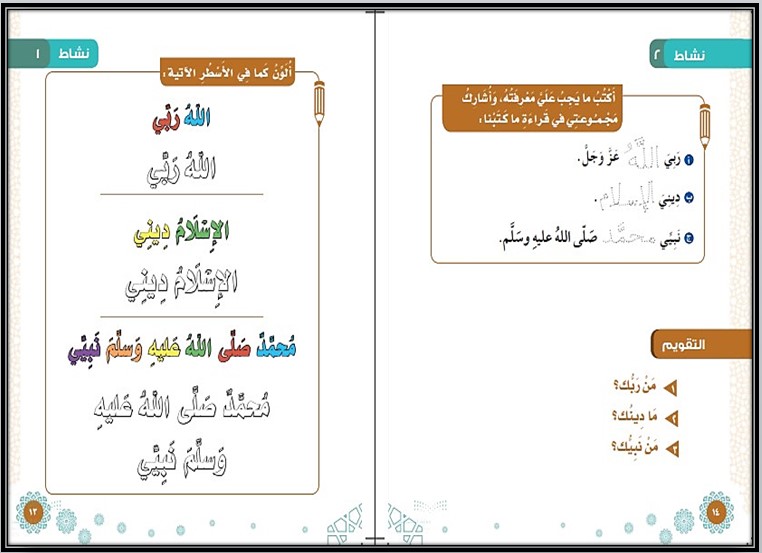 نشاط ٢
أَكْتُبُ ما يَجِبُ عَلَيَّ مَعْرِفَتُهُ، وَأُشَارِكُ
مَجْمُوعَتِي فِي قراءَةِ ما كَتَبْنا:
أ رَبِيَ اللَّهُ عَزَّ وَجَلَّ.
ب دِينِيَ الإسلام.
ج نَبِيِّي محمَّد صَلَّى اللهُ عليهِ وسَلَّم.
التقويم
١ مَنْ رَبُّك؟
٢ مَا دِينُك؟
٣ مَنْ نَبِيُّك؟
١٤
نشاط ١
أُلَوِّنُ كَما فِي الأَسْطُرِ الآتية:
اللهُ رَبِّي
اللهُ رَبِّي
الإِسْلَامُ دِينِي
الإِسْلَامُ دِينِي
مُحمَّدٌ صَلَّى اللهُ عَليهِ وَسلَّمَ نَبِيِّي
مُحمَّدٌ صَلَّى اللهُ عَليهِ
وَسلَّمَ نَبِيِّي
١٣